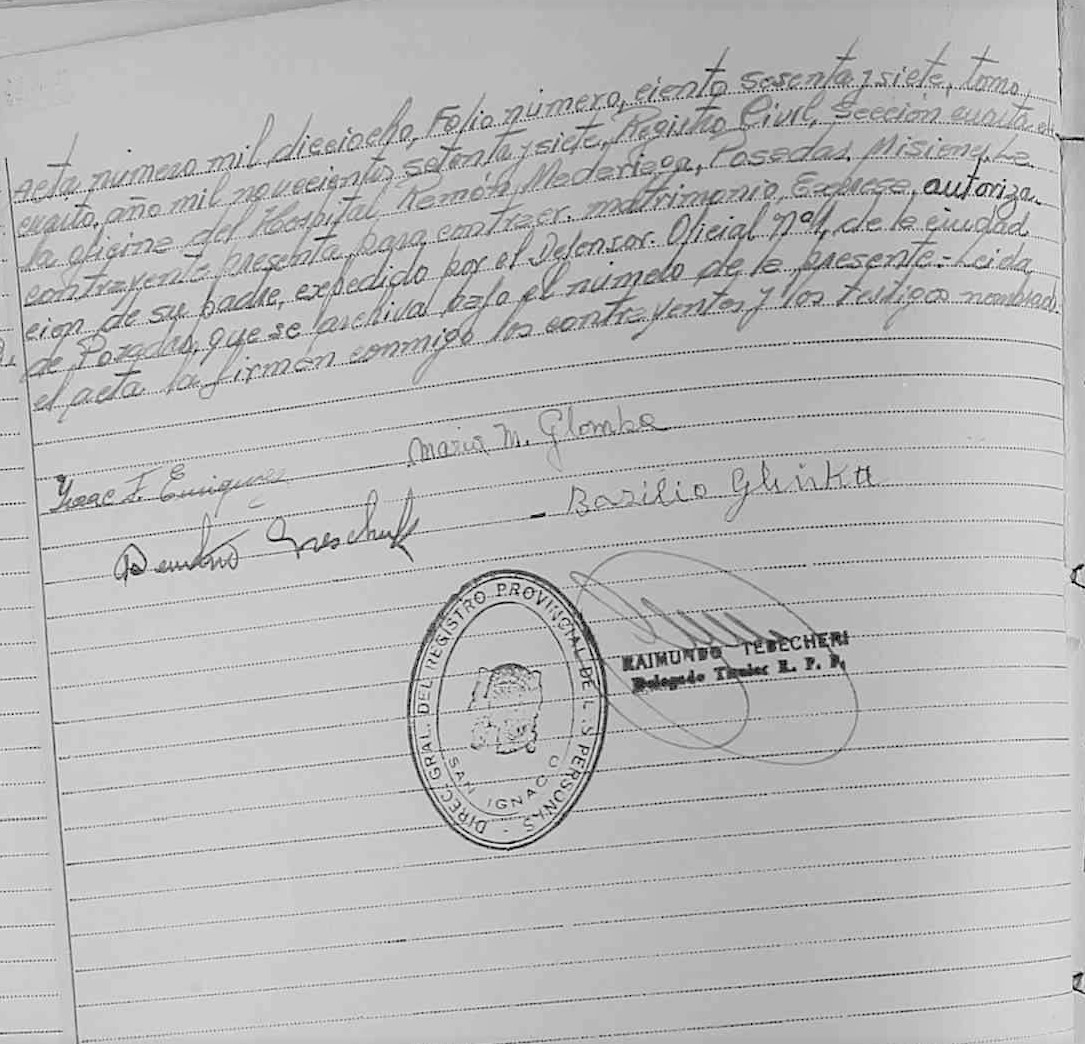 Acta, número mil dieciocho, Folio número, ciento sesenta y siete, tomo,
cuarto, año mil novecientos setenta y siete, Registro Civil, Sección cuarta en
la oficina del Hospital Ramón Madariaga, Posadas, Misiones. La
contrayente presenta para contraer matrimonio, Expresa, autoriza
cion de su padre, expedido por el Defensor Oficial Nº1, de la ciudad
de Posadas, que se archiva bajo el número de la presente.- Leida
el acta la firman conmigo los contrayentes y los testigos nombrad
Maria M. Glomba
Isaac F. Enriquez
Basilio Glinka
DIREC. GRAL. DEL REGISTRO PROVINCIAL DE L S PERSONAS - SAN IGNACIO
RAIMUNDO TEBECHERI
Delegado Titular R. P. P.